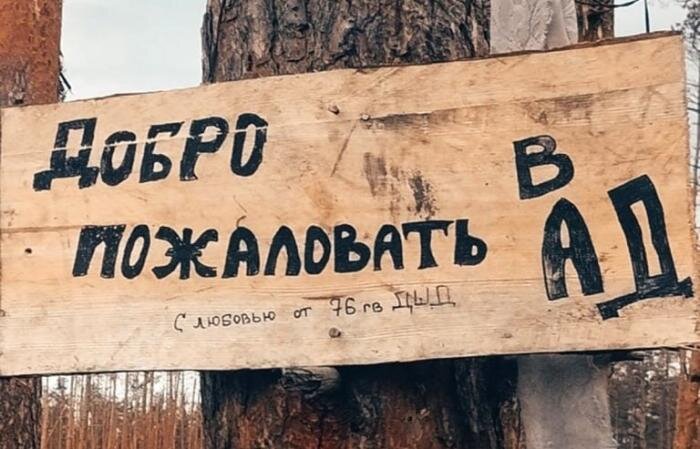 ДОБРО
ПОЖАЛОВАТЬ
В
АД
С любовью от 76 гв ДШД